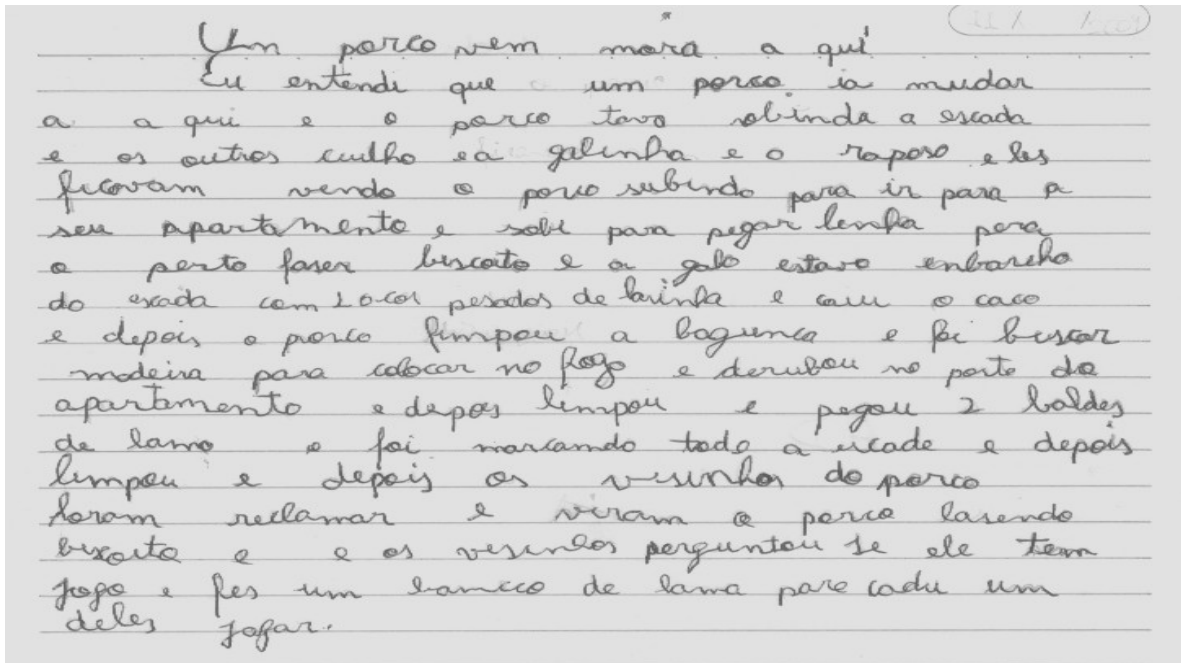 Um porco vem mora a qui
Eu entendi que um porco ia mudar
a a qui e o porco tavo sobindo a escada
e os outros cuelho e a galinha e o raposo e les
ficovam vendo o porco subindo para ir para o
seu apartamento e sobi para pegar lenha para
o porto faser biscoito e o galo estavo enbaicho
do escada com sacos pesados de farinha e caiu o caco
e depois o porco limpou a bagunca e foi buscar
madeira para colocar no fogo e derubou no porto do
apartamento e depois limpou e pegou 2 baldes
de lamo e foi marcando todo a escade e depois
limpou e depois os visinhos do porco
foram reclamar e viram o porco fasendo
biscoito e e os vesinhos perguntou se ele tem
jogo e fes um de lama para cadu um
deles jogar.